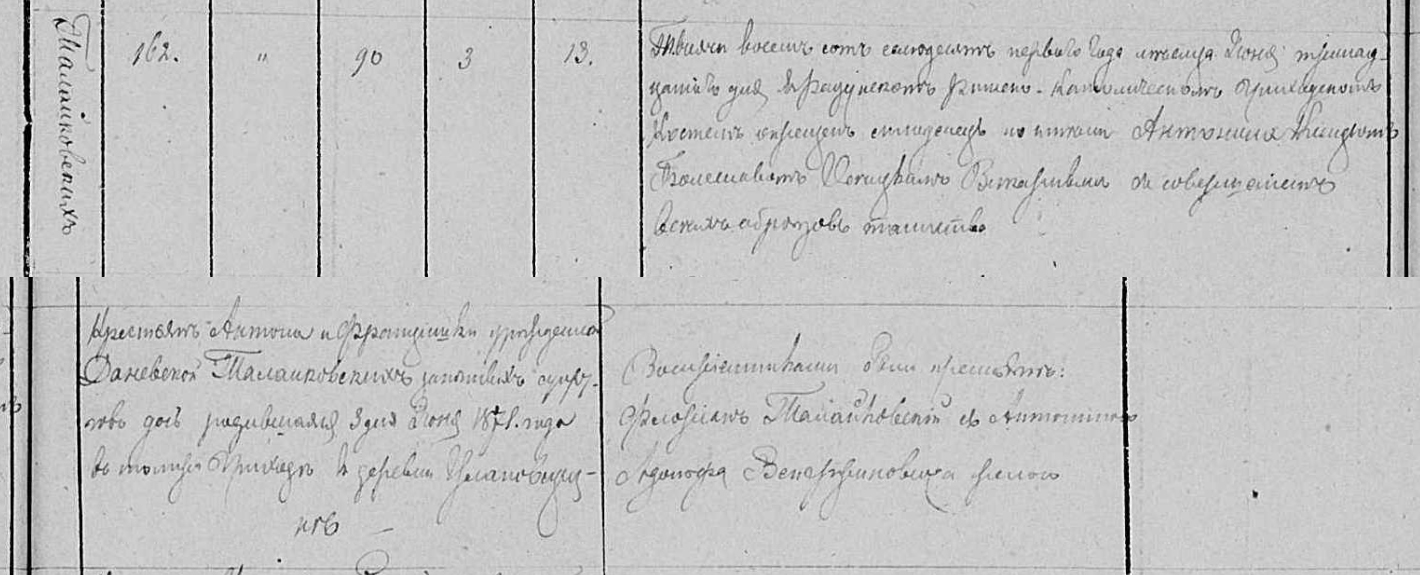 Талайковскихъ
162. " 90 3 13.
Тысяча восемь сотъ семьдесятъ перваго года мѣсяца Іюня тринад-
цатаго дня въ Радунскомъ Римско-Католическомъ Приходскомъ
Костелѣ окрещенъ младенецъ по имени Антонина Ксендзомъ
Болеславомъ съ совершеніемъ
всѣхъ обрядовъ таинства
Крестьянъ Антона и Францишки урожденной
Даневской Талайковскихъ законныхъ супру-
говъ дочь родившаяся 3 дня Іюня 1871. года
въ томъ же Приходѣ въ деревни
Воспріемниками были крестьяне:
Талайковскій съ Антониною
Адольфа женою